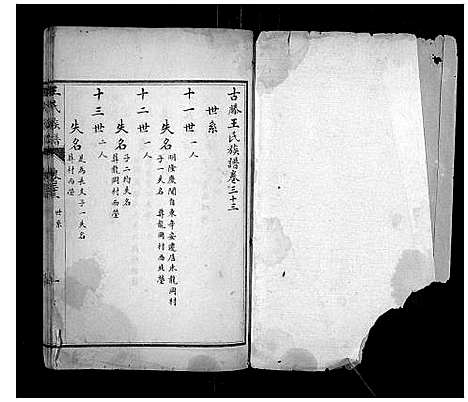 古滕王氏族譜卷三十三
世系
十一世一人
失名
明隆慶間自東辛安遷居朱龍岡村
子一失名 葬龍岡村西北塋
十二世一人
失名
子二均失名
葬龍岡村西塋
十三世二人
失名
是為長支子一失名
葬村西塋
王氏族譜
世系
一